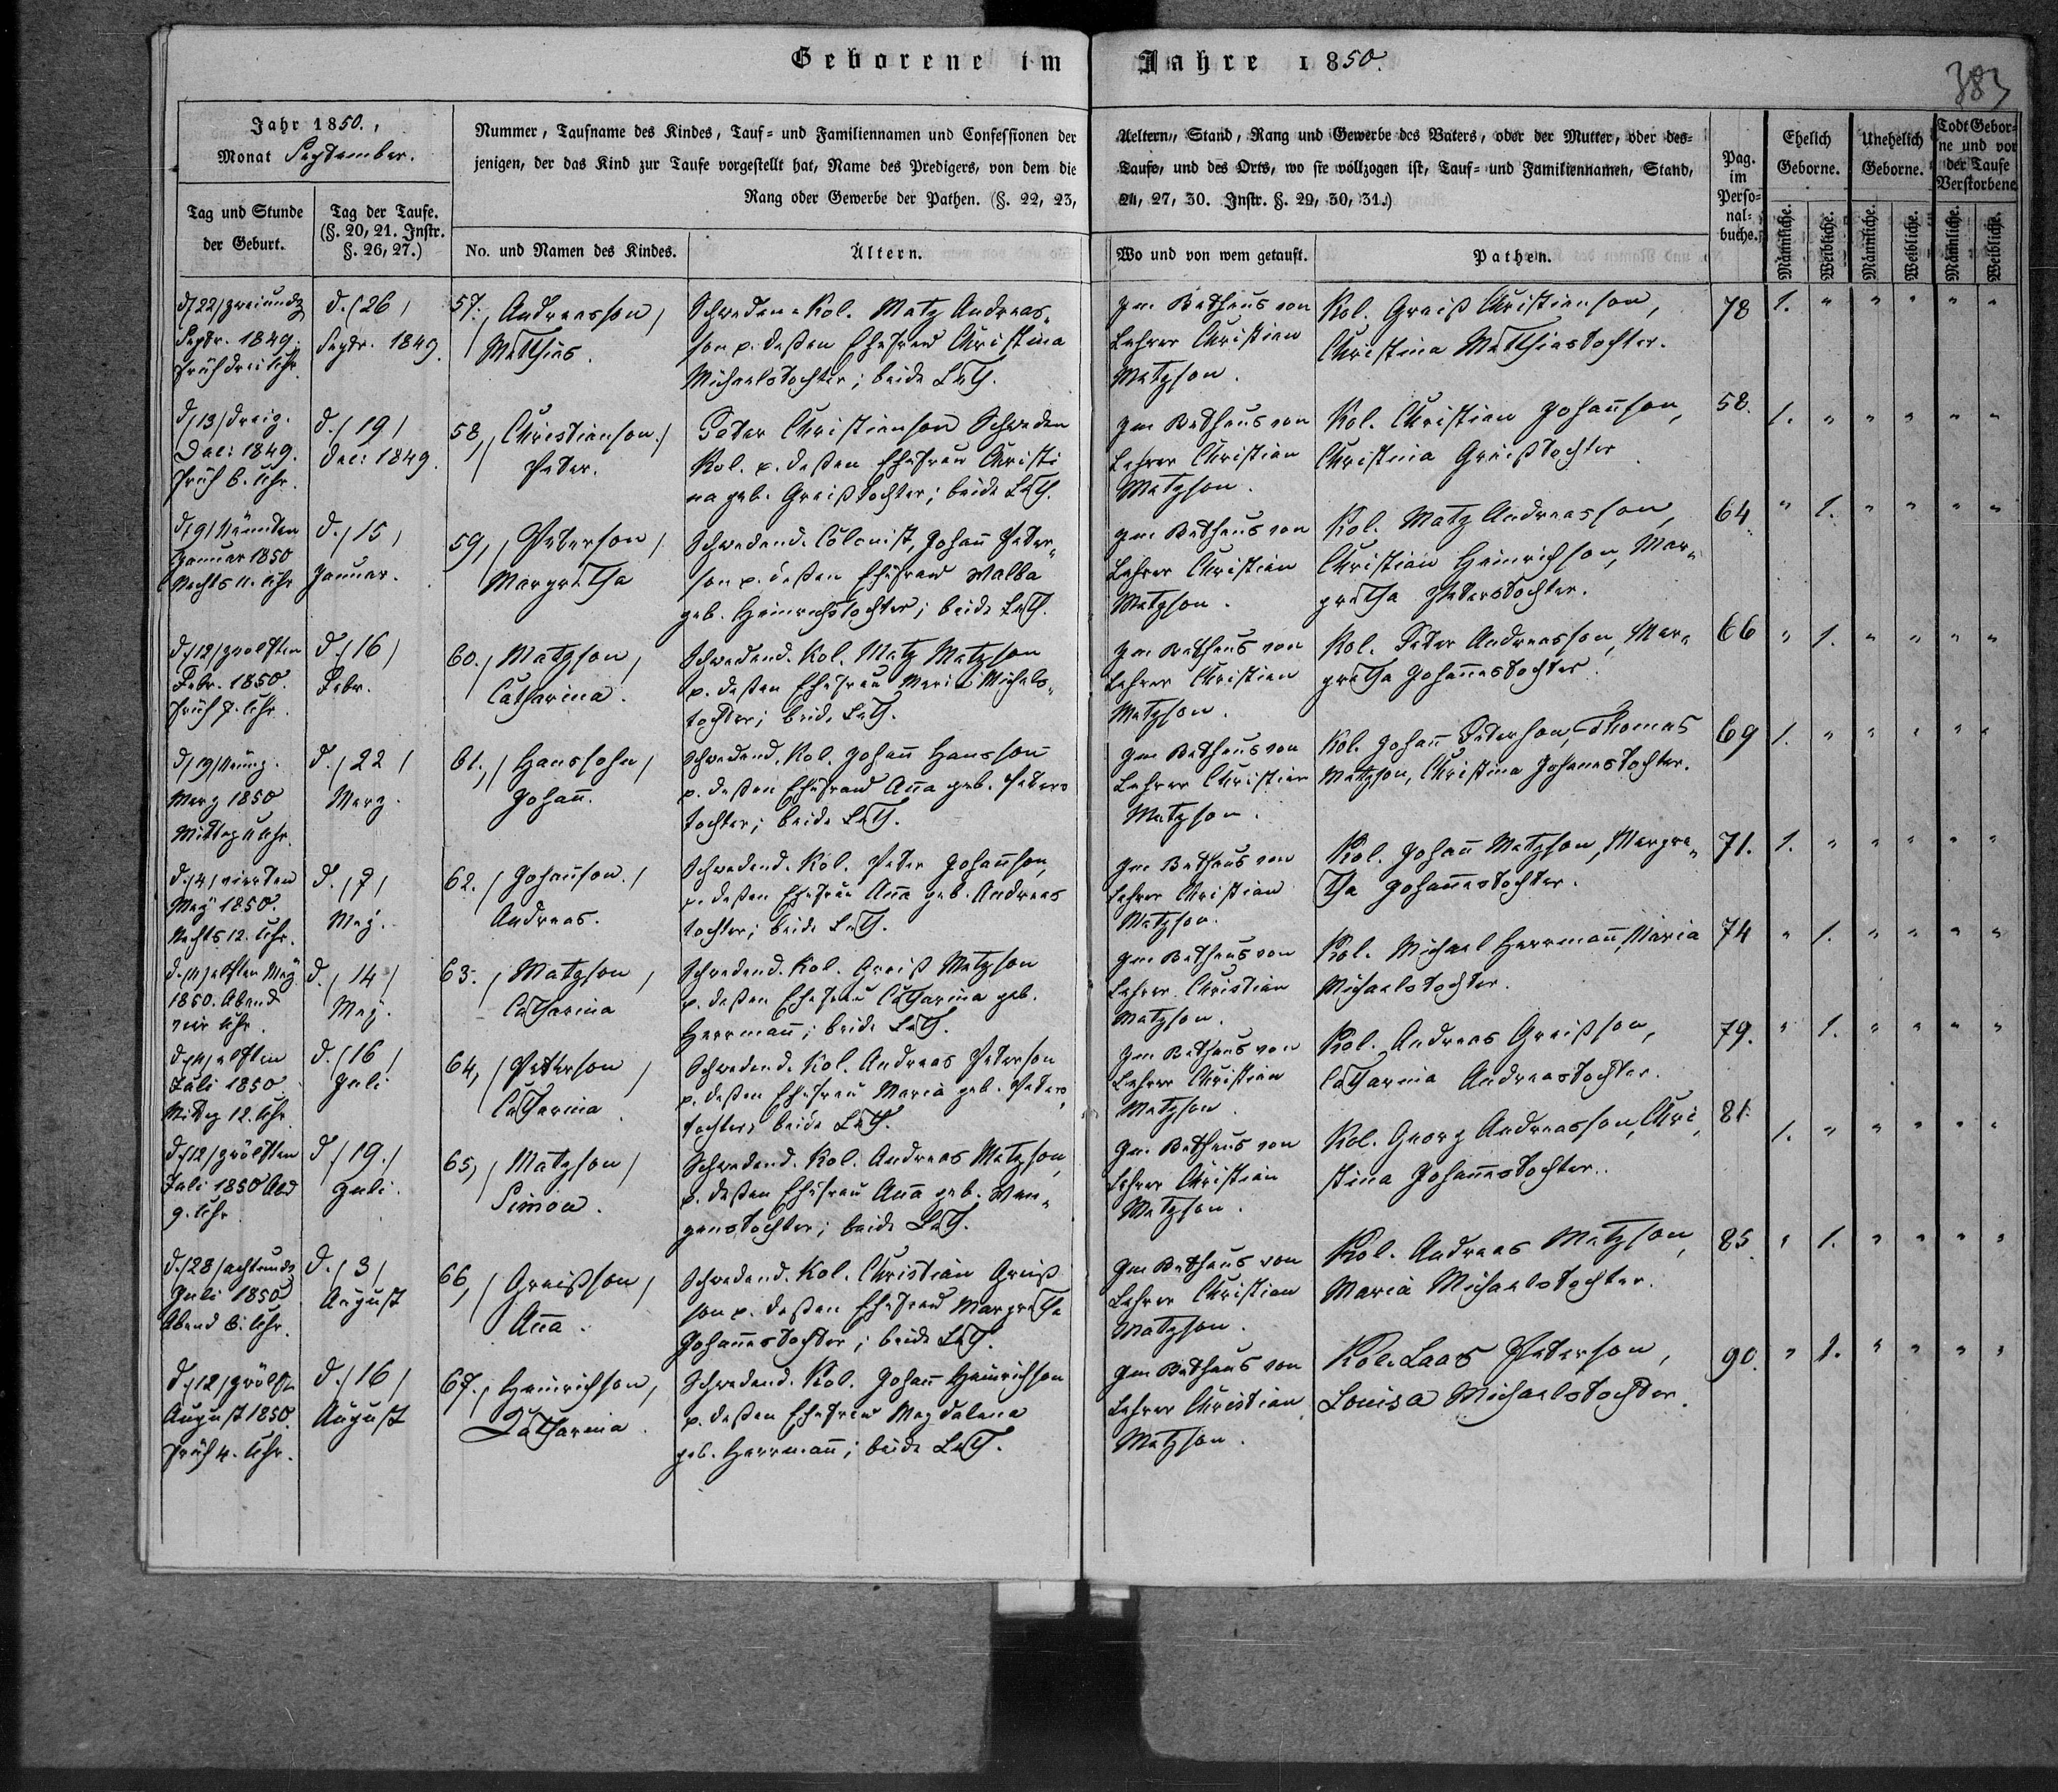 Geborene im Jahre 1850.
383
Jahr 1850.,
Monat September.
Nummer, Taufname des Kindes, Tauf= und Familiennamen und Confessionen der
jenigen, der das Kind zur Taufe vorgestellt hat, Name des Predigers, von dem die
Rang oder Gewerbe der Pathen. (§. 22, 23,
Aeltern, Stand, Rang und Gewerbe des Vaters, oder der Mutter, oder des=
Taufe, und des Orts, wo sie vollzogen ist, Tauf= und Familiennamen, Stand,
24, 27, 30. Instr. §. 29, 30, 31.)
Pag.
im
Perso=
nal=
buche.
Ehelich
Geborne.
Unehelich
Geborne.
Todt Gebor=
ne und vor
der Taufe
Verstorbene
Tag und Stunde
der Geburt.
Tag der Taufe.
(§. 20, 21. Instr.
§. 26, 27.)
No. und Namen des Kindes.
Ältern.
Wo und von wem getauft.
Pathen.
Männliche.
Weibliche.
Männliche.
Weibliche.
Männliche.
Weibliche.
d./22/zweiundz
Septr. 1849.
früh drei Uhr.
d./26/
Septr. 1849.
57., Andreasson,
Matthias.
Schweden=Kol. Matz Andreas=
son u. deßen Ehefrau Christina
Michaelstochter; beide Luth.
Im Bethaus von
Lehrer Christian
Matzson.
Kol. Greiß Christianson,
Christina Matthiastochter.
78 1. " " " " "
d./13/dreiz.
Dec: 1849.
früh 6. Uhr.
d./19/
Dec: 1849.
58,, Christianson./
Peter.
Peter Christianson Schweden
Kol. u. deßen Ehefrau Christi
na geb. Greißtochter; beide Luth.
Im Bethaus von
Lehrer Christian
Matzson.
Kol. Christian Johannson,
Christina Greißtochter
58. 1. " " " " "
d./9/Neunten
Januar 1850
Nachts 11. Uhr
d./15/
Januar.
59,, Peterson/
Margretha
Schwedend. Colonist, Johann Peter=
son u. deßen Ehefrau Walba
geb. Heinrichstochter; beide Luth.
Im Bethaus von
Lehrer Christian
Matzson.
Kol. Matz Andreasson,
Christian Heinrichson, Mar=
gretha Peterstochter.
64 " 1. " " " "
d./12/zwölften
Febr. 1850.
früh 7. Uhr.
d./16/
Febr.
60./ Matzson,
Catharina.
Schwedend. Kol. Matz Matzson
u. deßen Ehefrau Maria Michels=
tochter; beide Luth.
Im Bethaus von
Lehrer Christian
Matzson.
Kol. Peter Andreasson, Mar=
gretha Johannestochter.
66 " 1. " " " "
d/19/Neunz.
Merz 1850
Mittag 11 Uhr.
d./22/
Merz.
61.,/ Hanssohn/
Johann.
Schwedend. Kol. Johann Hansson
u. deßen Ehefrau Anna geb. Peters
tochter; beide Luth.
Im Bethaus von
Lehrer Christian
Matzson.
Kol. Johann Peterson, Thomas
Matzson, Christina Johanestochter.
69 1. " " " " "
d./4/vierten
May 1850.
Nachts 12. Uhr.
d./7/
May.
62./ Johannson./
Andreas.
Schwedend. Kol. Peter Johannson,
u. deßen Ehefrau Anna geb. Andreas
tochter; beide Luth.
Im Bethaus von
Lehrer Christian
Matzson.
Kol. Johann Matzson, Margre=
tha Johannestochter.
71. 1. " " " " "
d./11/elften May
1850. Abend
vier Uhr.
d./14/
May.
63./ Matzson,
Catharina
Schwedend. Kol. Greiß Matzson
u. deßen Ehefrau Catharina geb.
Herrmann; beide Luth.
Im Bethaus von
Lehrer Christian
Matzson.
Kol. Michael Herrmann, Maria
Michaelstochter.
74 " 1. " " " "
d./11/elften
Juli 1850.
Mittag 12. Uhr.
d./16/
Juli
64,/ Peterson/
Catharina.
Schwedend. Kol. Andreas Peterson
u. deßen Ehefrau Maria geb. Peters=
tochter, beide Luth.
Im Bethaus von
Lehrer Christian
Matzson.
Kol. Andreas Greißson,
Catharina Andreastochter.
79. " 1. " " " "
d./12/zwölften
Juli 1850 Abd
9. Uhr.
d./19./
Juli.
65,/ Matzson/
Simon.
Schwedend. Kol. Andreas Matzson,
u. deßen Ehefrau Anna geb.
beide Luth.
Im Bethaus von
Lehrer Christian
Matzson.
Kol. Georg Andreasson, Chri=
stina Johannestochter.
81. 1. " " " " "
d./28/achtundz
Juli 1850
Abend 6. Uhr.
d./3/
August
66,/ Greißson/
Anna.
Schwedend. Kol. Christian Greiß
son u. deßen Ehefrau Margretha
Johannestochter; beide Luth.
Im Bethaus von
Lehrer Christian
Matzson.
Kol. Andreas Matzson,
Maria Michaelstochter.
85. " 1. " " " "
d./12/zwölft
August 1850.
früh 4. Uhr.
d./16/
August
67./ Heinrichson,
Catharina.
Schwedend. Kol. Johann Heinrichson
u. deßen Ehefrau Magdalena
geb. Herrmann; beide Luth.
Im Bethaus von
Lehrer Christian
Matzson.
Kol. Laas Peterson,
Louisa Michaelstochter.
90. " 1. " " " "